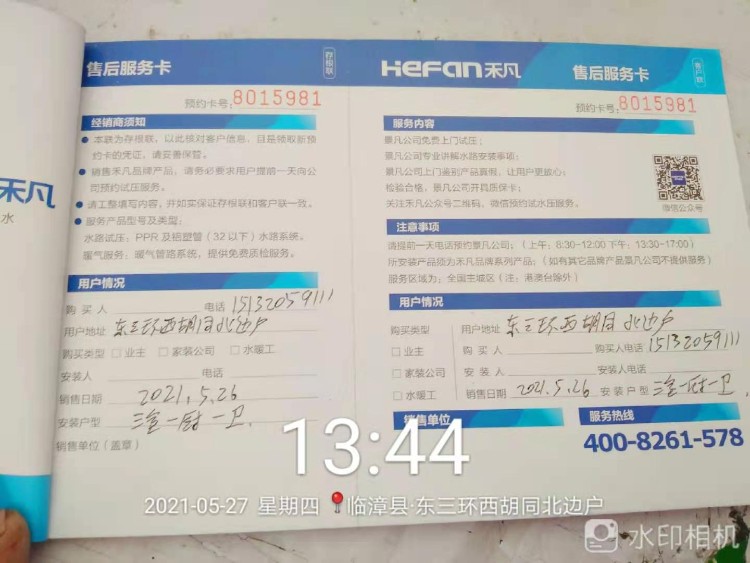 售后服务卡
存根联
预约卡号:8015981
经销商须知
本联为存根联，以此核对客户信息，且是领取新预
约卡的凭证，请妥善保管。
销售禾凡品牌产品，请务必要求用户提前一天向公
司预约试压服务。
请工整填写内容，并如实保证存根联和客户联一致。
服务产品型号及类型:
水路试压: PPR 及铝塑管（32 以下）水路系统。
暖气服务: 暖气管路系统，提供免费质检服务。
用户情况
购 买 人 电话 15132059111
用户地址 东三环西胡同北边户
购买类型 □ 业主 □ 家装公司 □ 水暖工
安装人 电话
销售日期 2021.5.26
安装户型 三室一厨一卫.
销售单位（盖章）
HEFAN禾凡
售后服务卡
客户联
预约卡号:8015981
服务内容
景凡公司免费上门试压;
景凡公司专业讲解水路安装事项;
景凡公司上门鉴别产品真假，让用户更放心;
检验合格，景凡公司开具质保卡;
关注禾凡公众号二维码，微信预约试水压服务。
微信公众号
注意事项
请提前一天电话预约景凡公司;（上午: 8:30-12:00 下午: 13:30-17:00）
所安装产品须为禾凡品牌系列产品;（如有其它品牌产品景凡公司不提供服务）
服务区域为: 全国主城区（注: 港澳台除外）
用户情况
购买类型 用户地址 东三环西胡同北边户
□ 业主 购 买 人 购买人电话 15132059111
□ 家装公司 安 装 人 安装人电话
□ 水暖工 销售日期 2021.5.26 安装户型 三室一厨一卫
销售单位
服务热线
400-8261-578
禾凡
水
13:44
2021-05-27 星期四 临漳县·东三环西胡同北边户
水印相机